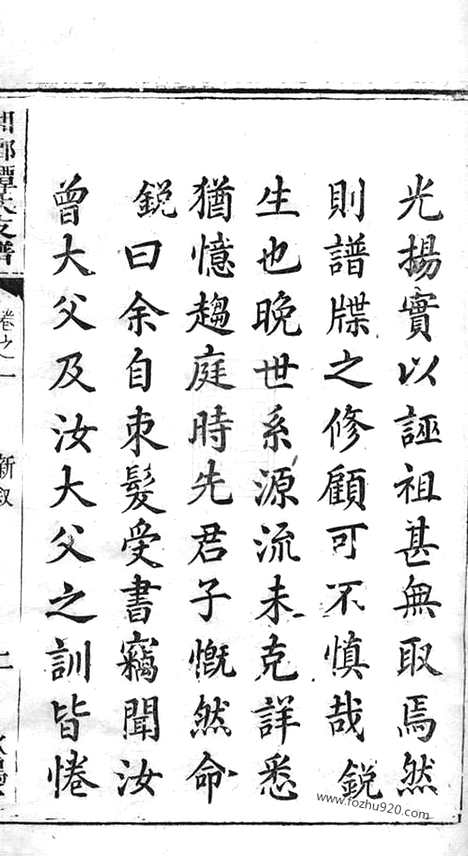 光揚實以誣祖甚無取焉然
則譜牒之修顧可不慎哉銳
生也晚世系源流未克詳悉
猶憶趨庭時先君子慨然命
銳曰余自束髮受書竊聞汝
曾大父及汝大父之訓皆惓
譚氏支譜
卷之一
新敘
www.fozhu920.com